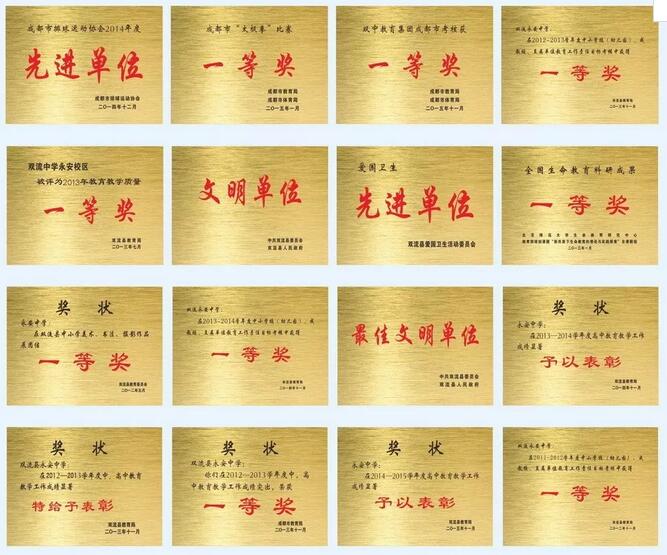 成都市排球运动协会2014年度
先进单位
成都市排球运动协会
二〇一四年十二月
成都市“太极拳”比赛
一等奖
成都市教育局
成都市体育局
二〇一五年一月
双中教育集团成都市考核获
一等奖
成都市教育局
成都市体育局
二〇一五年一月
在2012-2013学年度中小学校(幼儿园)、成
教校、直属单位教育工作责任目标考核中获得
一等奖
双流县教育局
二〇一三年十一月
双流中学永安校区
被评为2013年教育教学质量
一等奖
双流县教育局
二〇一三年七月
文明单位
中共双流县委员会
双流县人民政府
爱国卫生
先进单位
双流县爱国卫生活动委员会
全国生命教育科研成果
一等奖
北京师范大学生命教育研究中心
二〇一三年一月
奖状
永安中学:
在双流县中小学美术、书法、摄影作品
展团体
一等奖
双流县教育委员会
二〇一二年五月
永安中学:
在2013-2014学年度中小学校(幼儿园)、成
教校、直属单位教育工作责任目标考核中获得
一等奖
双流县教育局
二〇一四年十一月
最佳文明单位
中共双流县委员会
双流县人民政府
奖状
永安中学:
在2013—2014学年度高中教育教学工作
成绩显著
予以表彰
双流县教育局
二〇一四年十一月
奖状
双流县永安中学:
在2012—2013学年度中,高中教育
教学工作成绩显著
特给予表彰
双流县教育局
二〇一三年十一月
奖状
双流县永安中学:
你们在2012—2013学年度中,高
中教育教学工作成绩突出,荣获
一等奖
成都市教育局
二〇一三年十一月
奖状
双流县永安中学:
在2014—2015学年度高中教育教学工作
成绩显著
予以表彰
双流县教育局
二〇一五年十一月
在2011-2012学年度中小学校(幼儿园)、成
教校、直属单位教育工作责任目标考核中获得
一等奖
双流县教育局
二〇一二年十一月